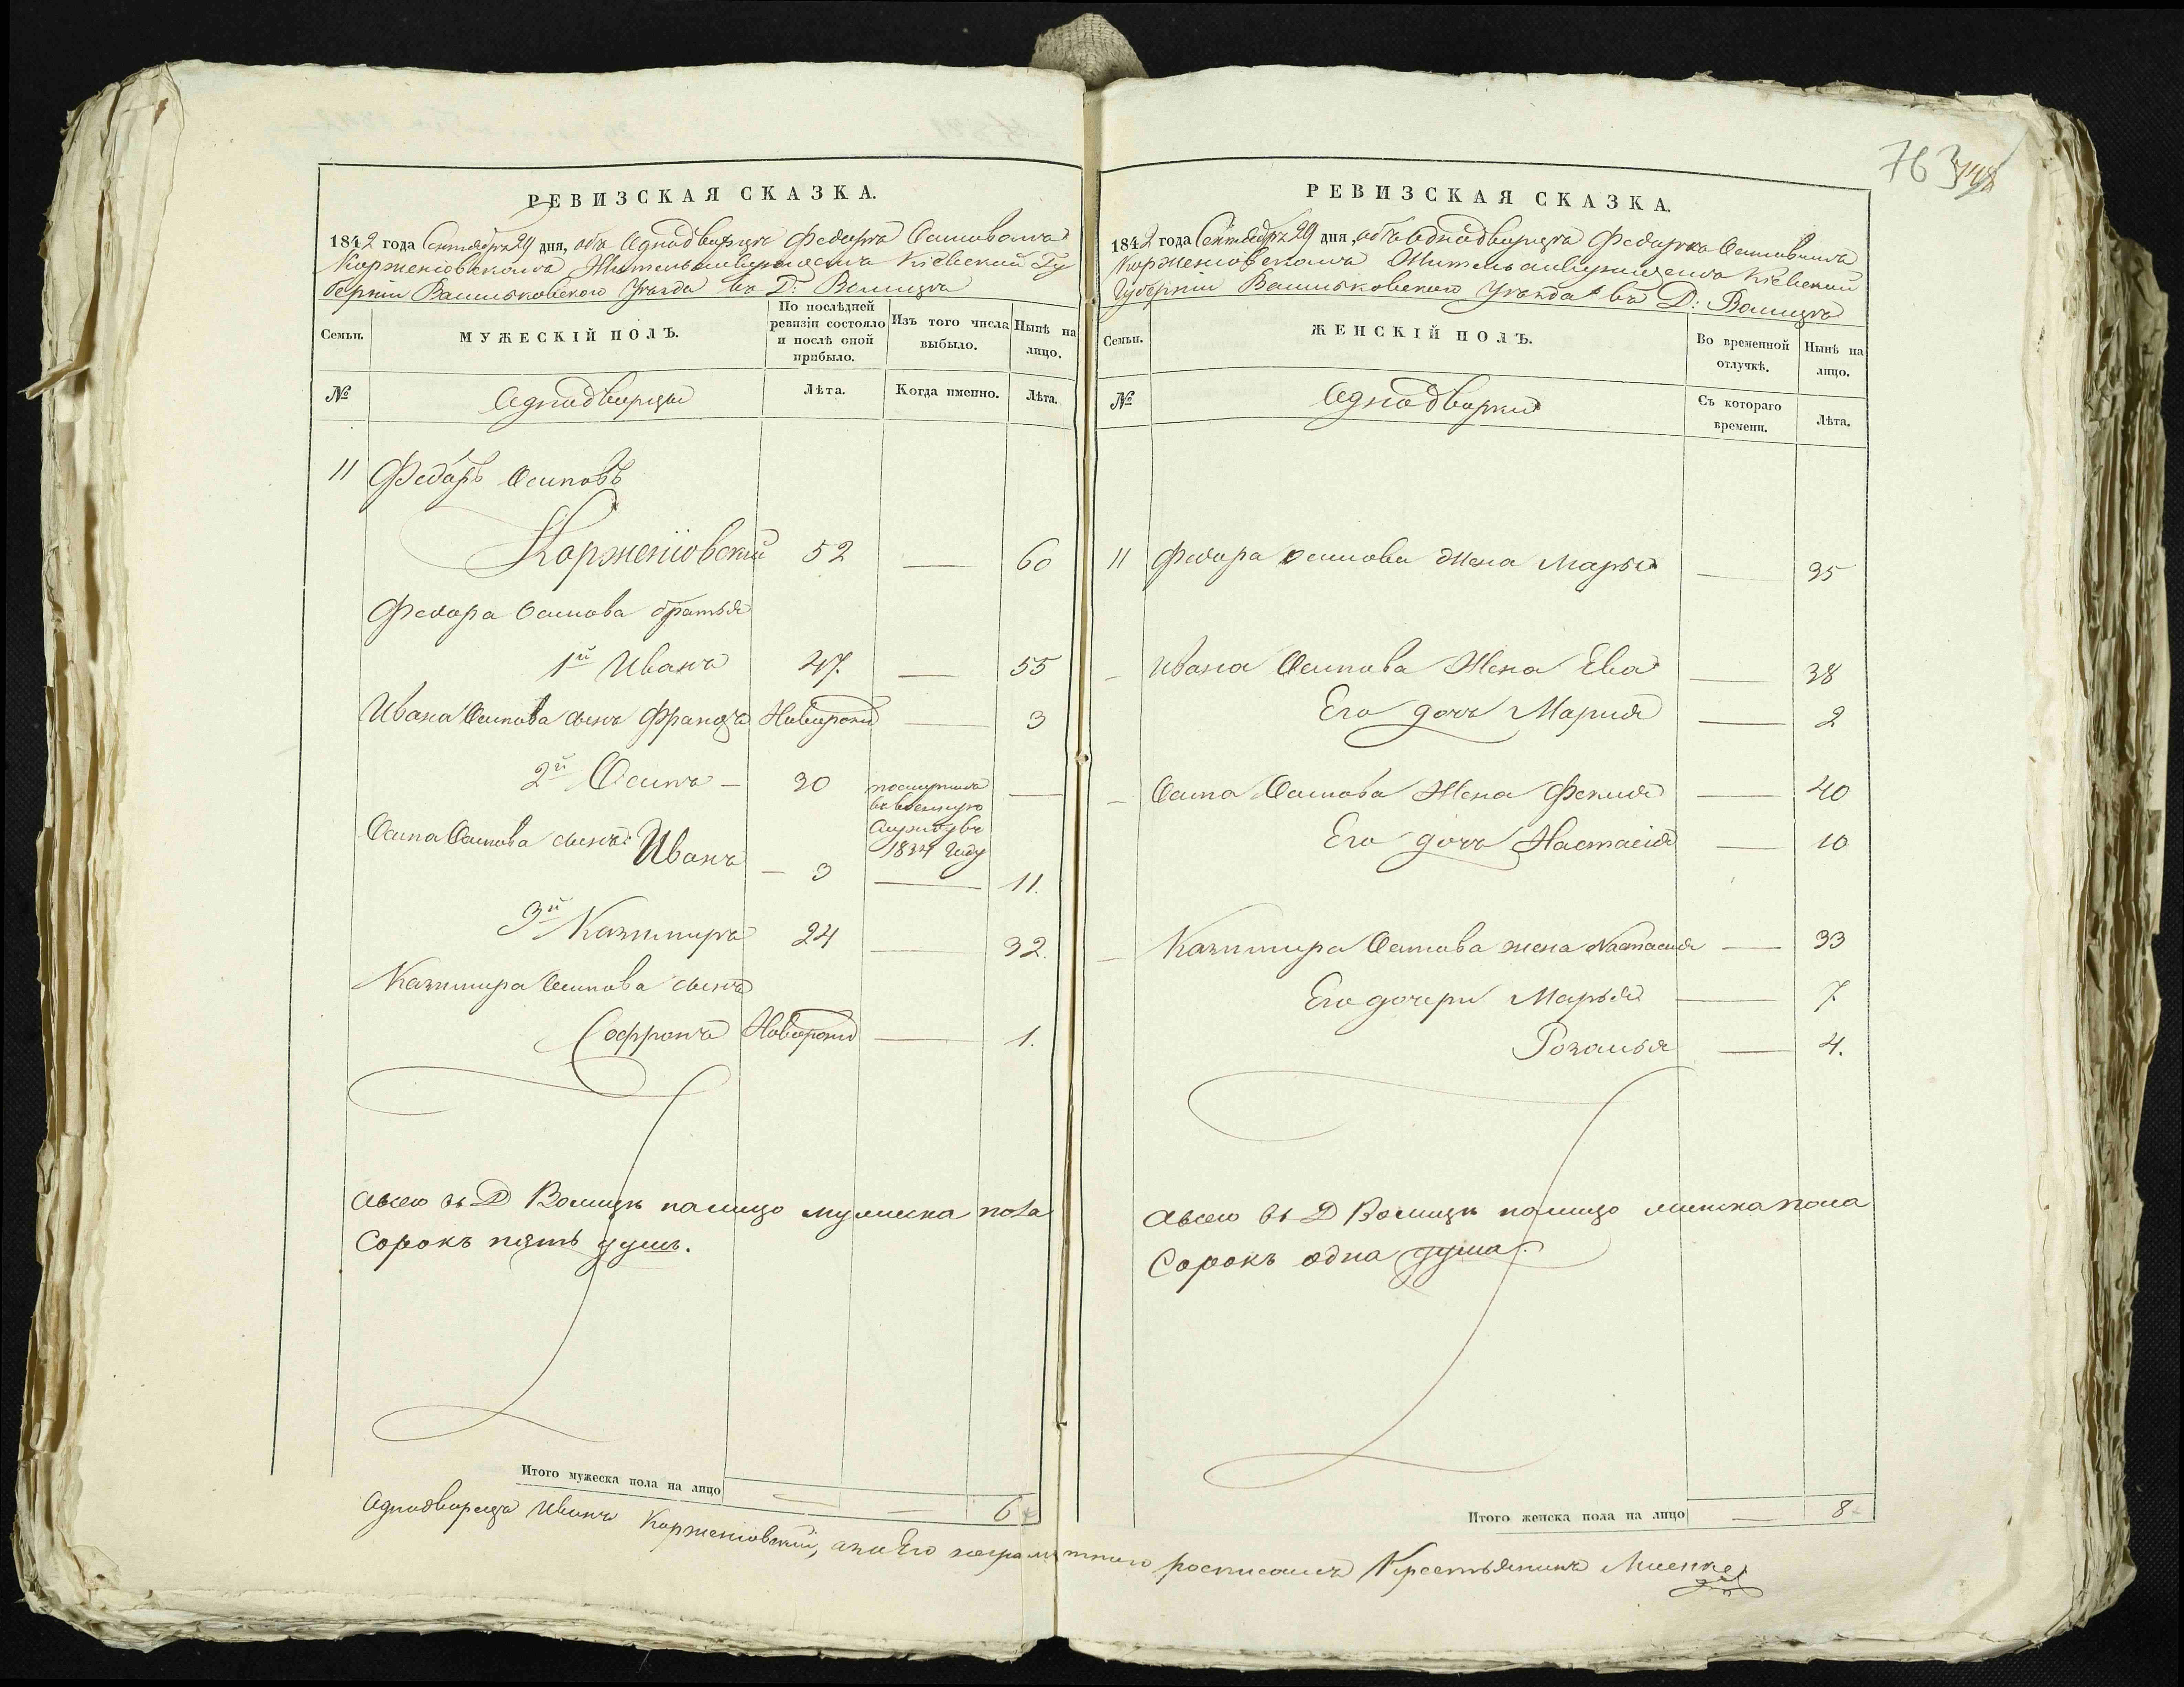 763
РЕВИЗСКАЯ СКАЗКА.
1842 года Сентября 29 дня, объ Однодворце Федоре Осиповомъ
Корженіовскомъ Жительствующемъ Кіевской Гу
берніи Васильковского Уезда въ Д: Волице
Семьи.
МУЖЕСКІЙ ПОЛЪ.
По послѣдней
ревизіи состояло
и послѣ оной
прибыло.
Изъ того числа
выбыло.
Нынѣ на
лицо.
№
Однодворцы
Лѣта.
Когда именно.
Лѣта.
11 Федоръ Осиповъ
Корженіовскій 52 — 60
Федора Осипова братья
1й Иванъ 47. — 55
Ивана Осипова сынъ Францъ Новорожд — 3
2й Осипъ — 30 поступилъ
въ военную
службу въ
1834 году —
Осипа Осипова сынъ: Иванъ — 3 — 11.
3й Казимиръ 24 — 32.
Казимира Осипова сынъ
Софронъ Новорожд — 1.
Всего въ Д Волице налицо мужеска пола
Сорокъ пять душъ.
Итого мужеска пола на лицо — — 6
РЕВИЗСКАЯ СКАЗКА.
1842 года Сентября 29 дня, объ Однодворце Федоре Осиповомъ
Корженіовскомъ Жительствующемъ Кіевской
Губерніи Васильковского Уезда въ Д: Волице
Семьи.
ЖЕНСКІЙ ПОЛЪ.
Во временной
отлучкѣ.
Нынѣ на
лицо.
№
Однодворки
Съ котораго
времени.
Лѣта.
11 Федора Осипова Жена Марья — 35
Ивана Осипова Жена Ева — 38
Его дочь Марія — 2
Осипа Осипова Жена Фекла — 40
Его дочь Настасія — 10
Казимира Осипова жена Настасія — 33
Его дочери Марья — 7
Розалья — 4.
Всего въ Д Волице налицо женска пола
Сорокъ одна душа.
Итого женска пола на лицо — 8
Однодворецъ Иванъ Корженіовскій, а за Его неграмотного росписался Крестьянинъ